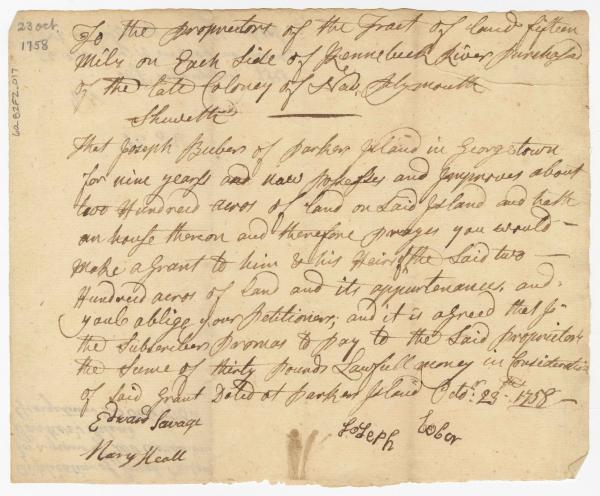 23 oct.
1758
62-82F2_017
To the proprietors of the Tract of land fifteen
Mils on Each Side of Kennebeck River Purchased
of the late Coloney of New Plymouth
Sheweth
That Joseph of Parkers Island in Georgetown
for nine years and now posesses and Improves about
two Hundred acros of land on Said Island and hath
an house thereon and therefore prayes you would
make a Grant to him & his Heirs of the Said two
Hundred acros of Land and its appurtenances and
youl oblige your Petitioner; and it is agreed that
the Subscriber Promas to pay to the Said proprietors
the Sume of thirty Pounds Lawfull money in Consideration
of Said Grant Dated at Parkers Island Octor. 23th. 1758
Edward Savage
Joseph
Mary Heall